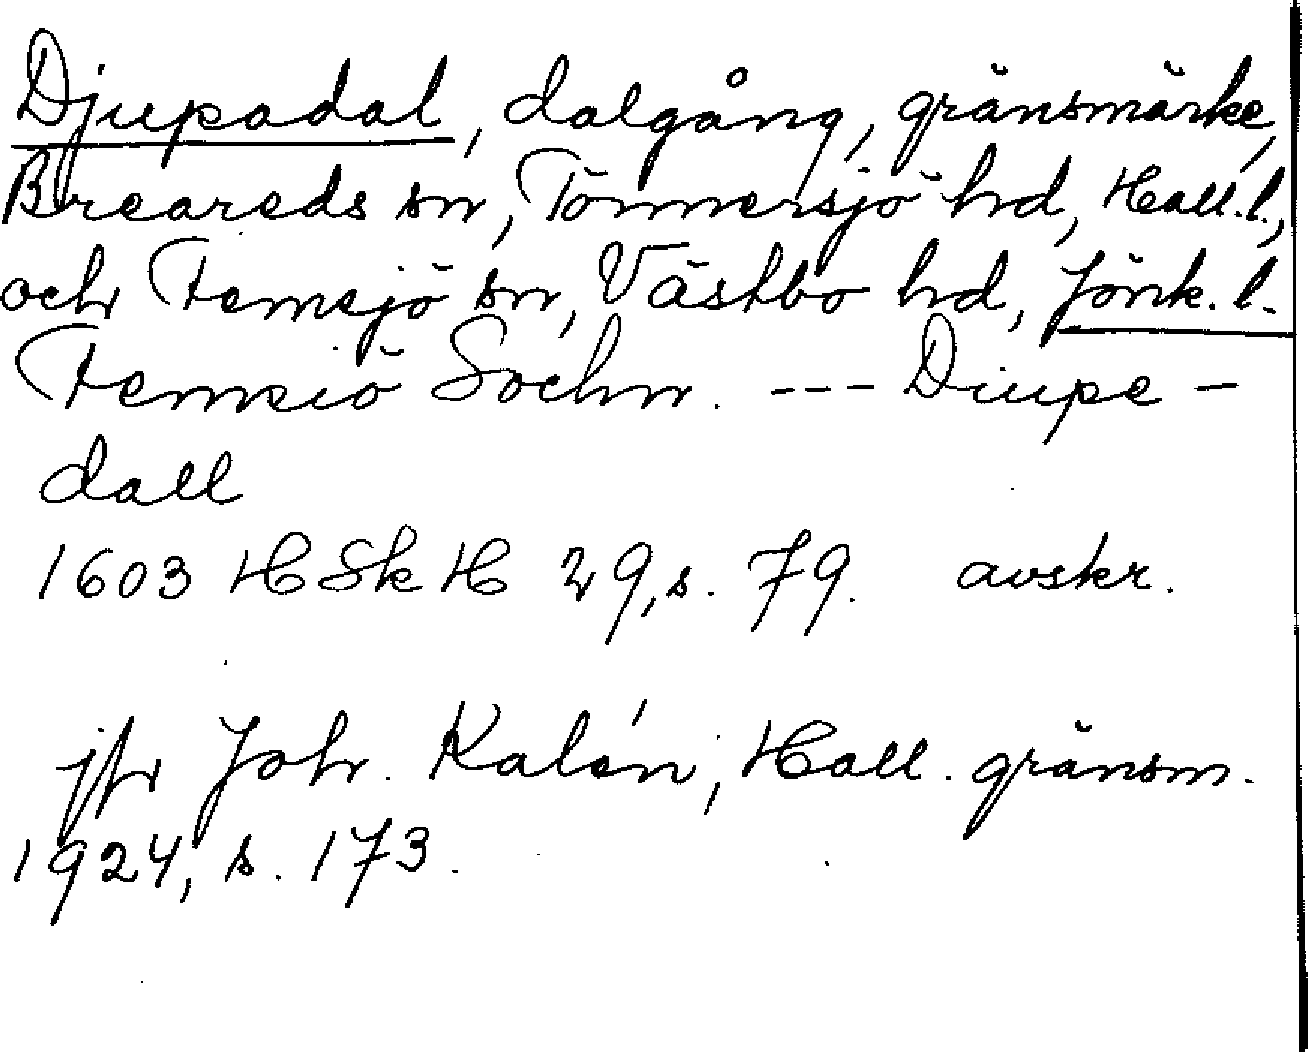 Djupadal, dalgång, gränsmärke,
Breareds sn, Tönnersjö hd, Hall. l.,
och Femsjö sn, Västbo hd, Jönk. l.
Femsiö Sochn. --- Diupe-
dall
1603 HSkH 29, s. 79. avskr.
jfr Joh. Kalén, Hall. gränsm.
1924, s. 173.